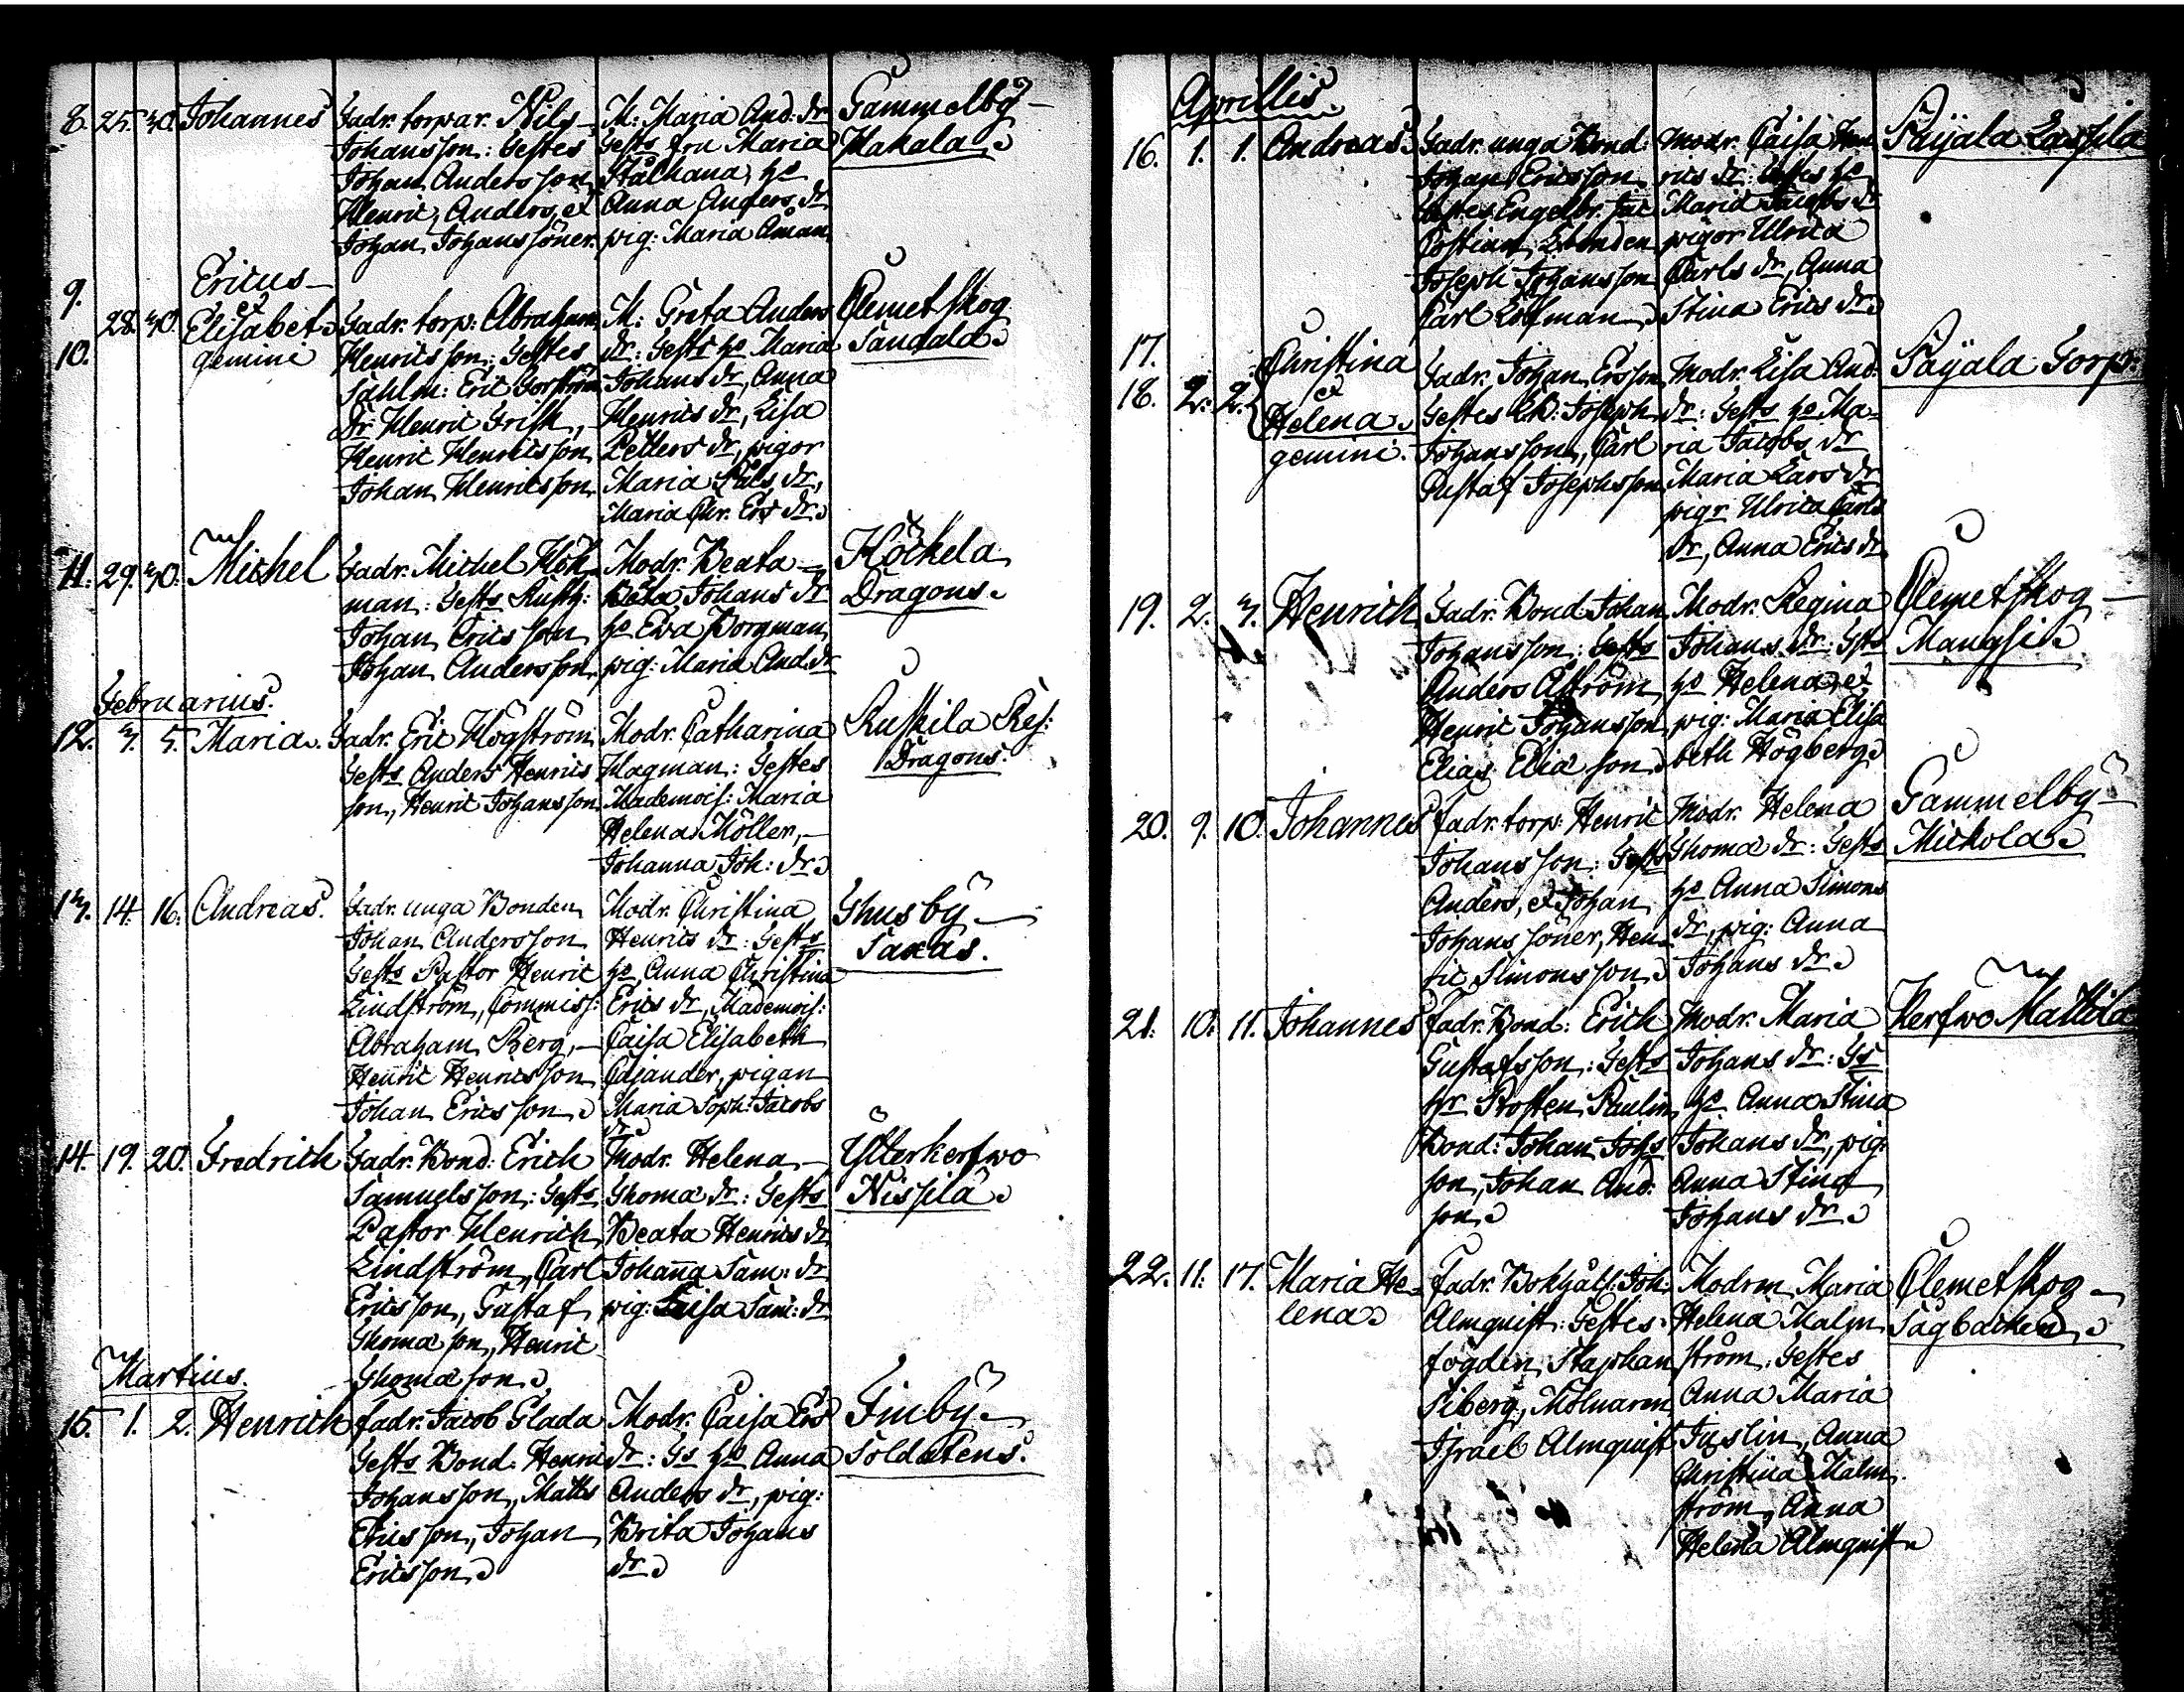 8. 25. 30. Johannes
Fadr. torpar. Nils
Johansson: Testes
Johan Andersson,
Henric, Anders, et
Johan Johanssöner.
M: Maria And: dr
Tests fru Maria
Stålhana, ho
Anna Anders dr
pig: Maria Åman
Gammelby
Makala
9.
10.
28. 30.
Ericus
et
Elisabet
gemini
Fadr. torp: Abraham
Henricsson: Testes
Henric Henricsson
Johan Henricsson
M: Greta Anders
dr: Tests ho Maria
Johans dr, Anna
Henrics dr, Lisa
Petters dr, pigor
Maria
Maria Chr. Ers dr
Clemetskog
Tandala
11. 29. 30. Michel
Fadr. Michel Hök
man: Tests Rusth:
Johan Ericsson
Johan Andersson
Modr. Beata
Beata Johans dr
ho Eva Borgman
pig: Maria And. dr
Köckela
Dragons
Februarius.
12. 3. 5. Maria
Fadr. Eric Högström
Tests Anders Henrics
son, Henric Johansson
Modr. Catharina
Hagman: Testes
Mademois: Maria
Helena Möller,
Johanna Joh: dr
Ruskila Res:
Dragons.
13. 14. 16. Andreas.
Fadr. unga Bonden
Johan Andersson
Tests Pastor Henric
Lindström, Commiss:
Abraham Berg,
Henric Henricsson
Johan Ericsson
Modr. Christina
Henrics dr: Tests
ho Anna Christina
Erics dr, Mademois:
Caisa Elisabeth
Cajander, pigan
Maria Soph: Jacobs
dr
Thusby
Saxas.
14. 19. 20. Fredrich
Fadr. Bond: Erich
Samuelsson: Tests
Pastor Henrich
Lindström, Carl
Ericsson, Gustaf
Thomason, Henric
Thomason
Modr. Helena
Thoma dr: Tests
Beata Henrics dr
Johanna Sam: dr
pig: Caisa Sam: dr
Ytterkerfwo
Nissilä
Martius.
15. 1. 2. Henrich
Fadr. Jacob Glada
Tests Bond. Henric
Johansson, Matts
Ericsson, Johan
Ericsson
Modr. Caisa Ers
dr: Ts ho Anna
Anders dr, pig:
Brita Johans
dr
Finby
Soldatens.
Aprillis.
16. 1. 1. Andreas
Fadr. unga Bond:
Johan Ericsson
Testes Engelbr. Jac
Joseph Johansson
Carl Löfman
Modr. Caisa Hen
rics dr: Testes ho
Maria Jacobs dr
pigor Ulrica
Carls dr, Anna
Stina Erics dr
Päyälä Lassila
17.
18. 2. 2.
Christina
et
Helena
gemini.
Fadr. Johan Ersson
Testes Joseph
Johansson, Carl
Gustaf Josephsson
Modr. Lisa And.
dr: Tests ho Ma
ria Jacobs dr
Maria Lars dr
pigr Ulrica Carls
dr, Anna Erics dr
Päyälä Torp:
19. 2. 3. Henrich
Fadr. Bond Johan
Johansson: Tests
Anders Åström,
Henric Johansson
Elias Eliason
Modr. Regina
Johans dr: Tsts
ho Helena, et
pig: Maria Elisa
beth Högberg
Clemetskog
Mangsi
20. 9. 10. Johannes
fadr. torp: Henric
Johansson: Tests
Anders, et Johan
Johanssöner, Hen
ric Simonsson
Modr. Helena
Thoma dr: Tests
ho Anna Simons
dr, pig: Anna
Johans dr
Gammelby
Mickola
21. 10. 11. Johannes
fadr. Bond: Erich
Gustafsson: Tests
hr Prosten Paulin,
Bond: Johan Johs
son, Johan And.
son
Modr. Maria
Johans dr: Ts
ho Anna Stina
Johans dr, pig:
Anna Stina
Johans dr
Kerfwo Mattila
22. 11. 17. Maria He
lena
fadr. Bokhåll: Joh:
Almquist: Testes
fogden Staphan
Siberg, Mölnaren
Israel Almquist
Modren Maria
Helena Malm
ström: Testes
Anna Maria
Anna
Christina Malm
ström, Anna
Helena Almquist
Clemetskog
Sågbacken